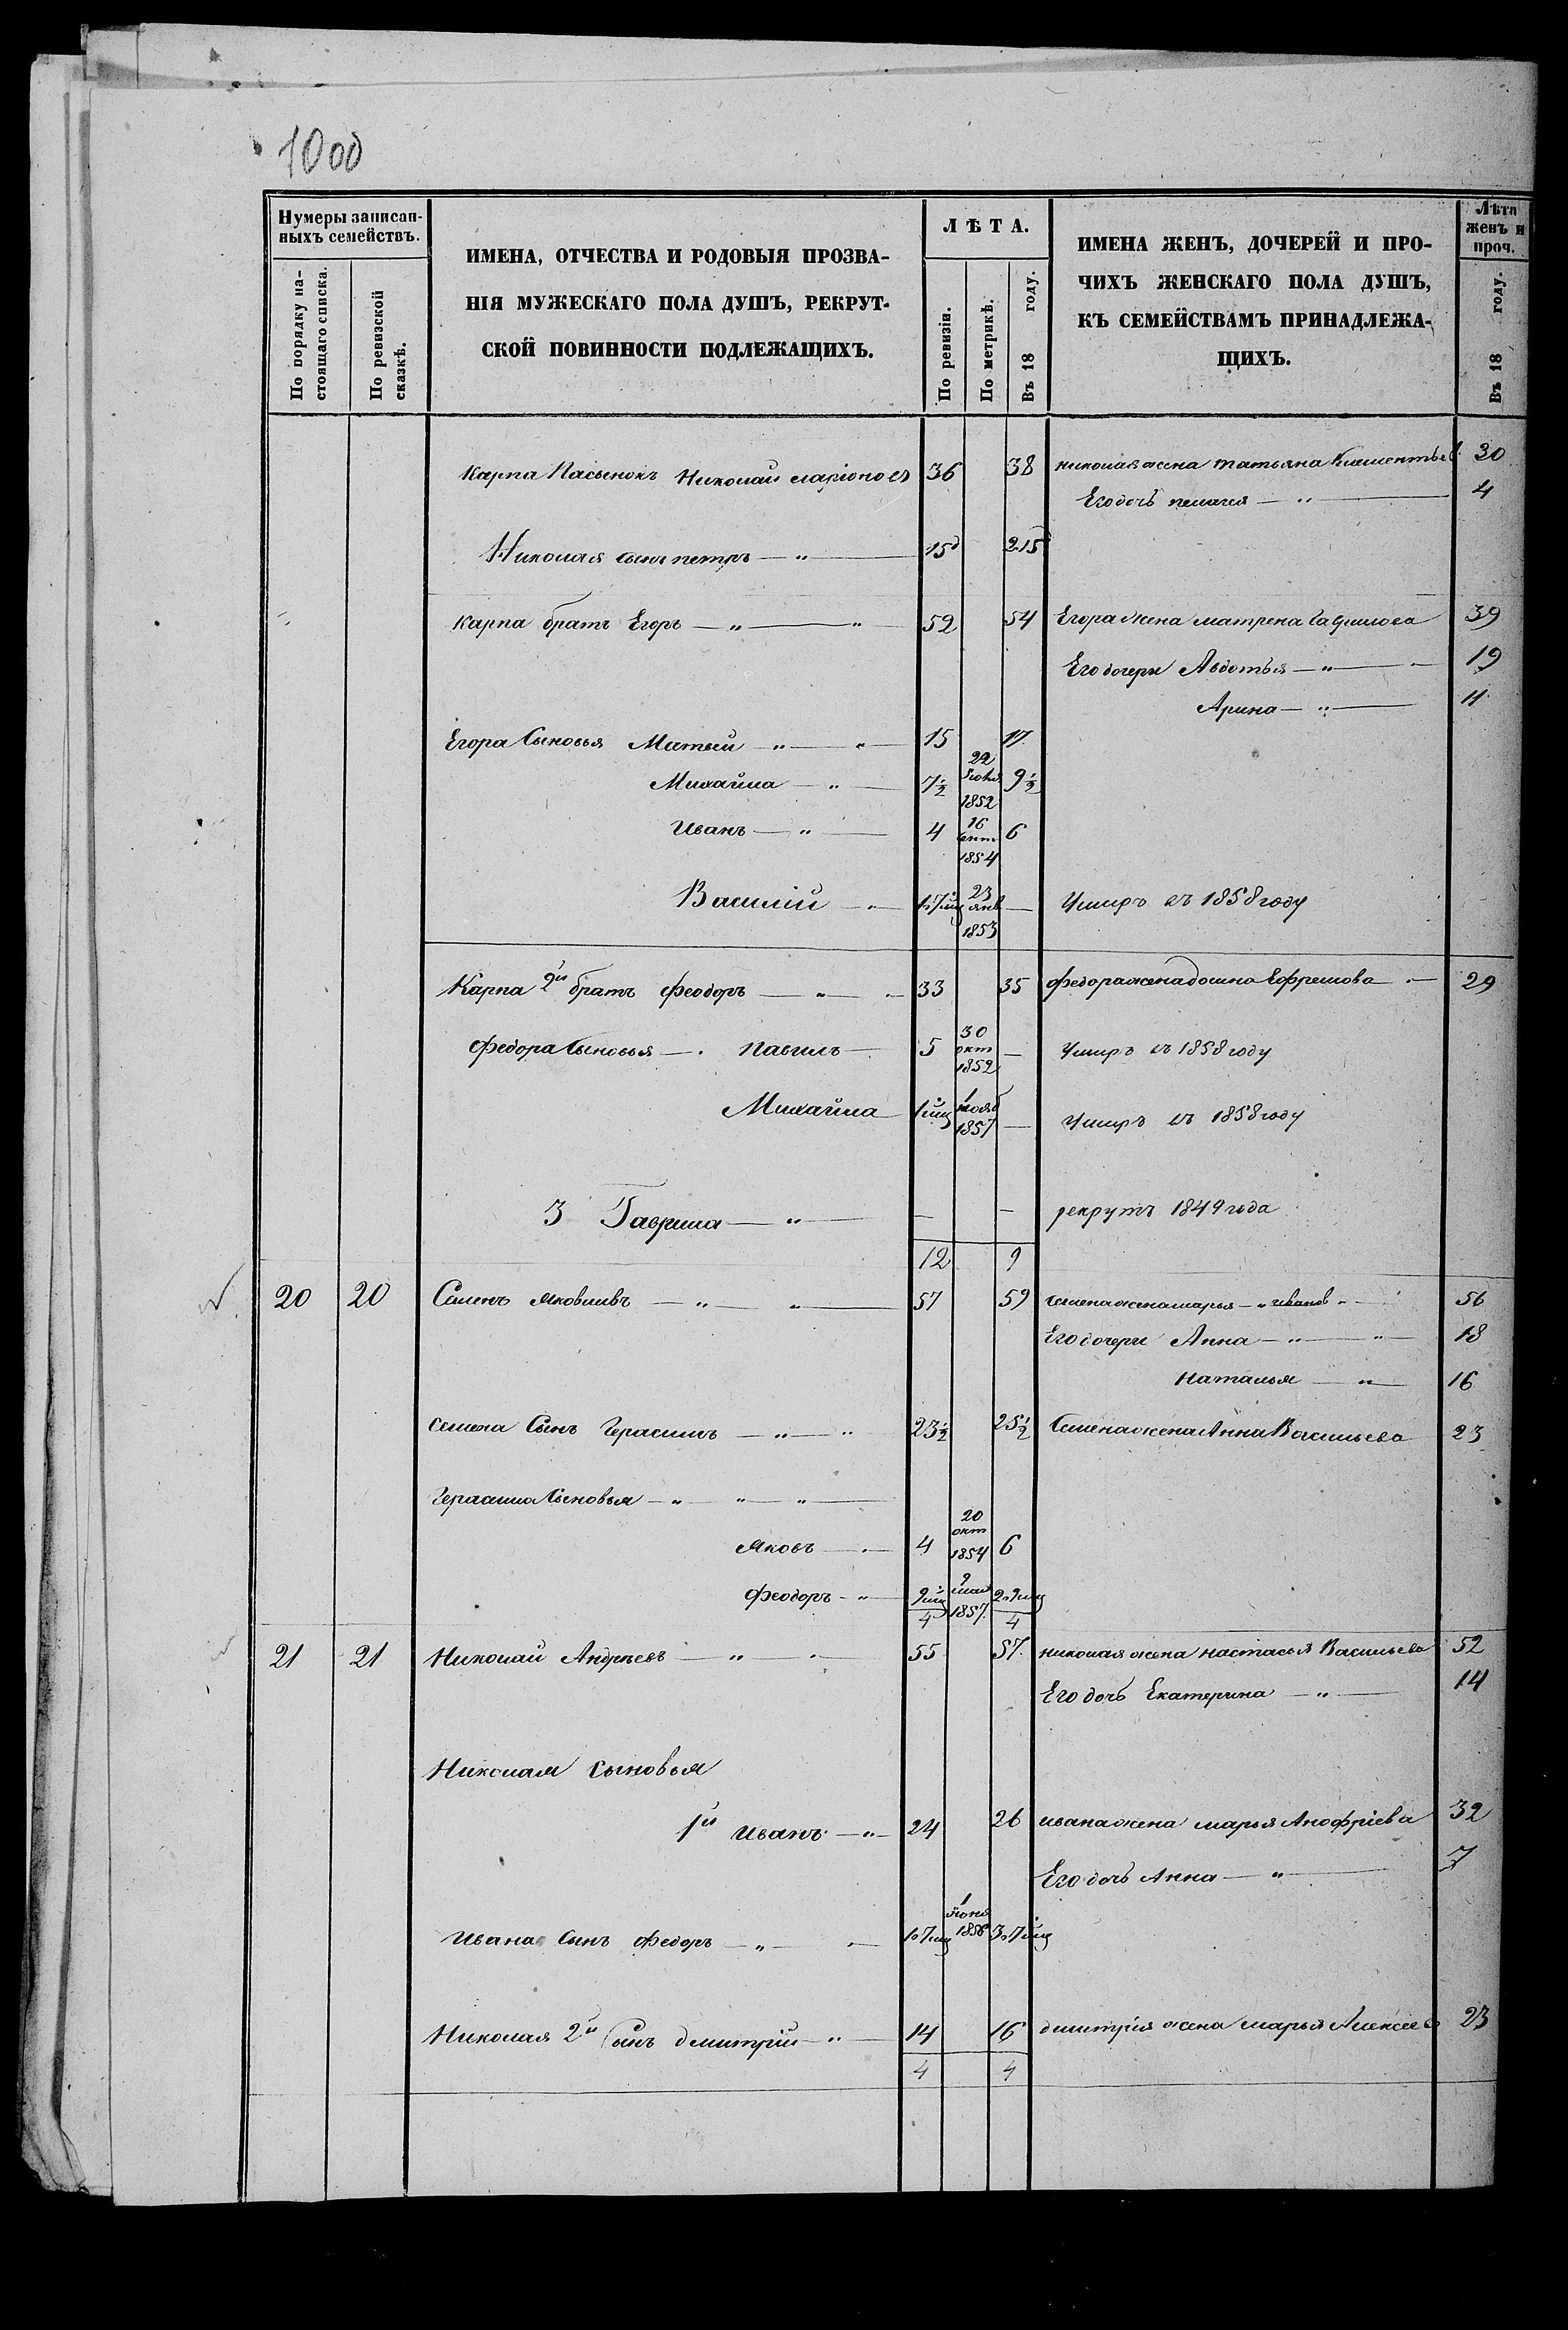 1000
Нумеры записан-
ныхъ семействъ.
По порядку на-
стоящаго списка.
По ревизской
сказкѣ.
ИМЕНА, ОТЧЕСТВА И РОДОВЫЯ ПРОЗВА-
НІЯ МУЖЕСКАГО ПОЛА ДУШЪ, РЕКРУТ-
СКОЙ ПОВИННОСТИ ПОДЛЕЖАЩИХЪ.
ЛѢТА.
По ревизіи.
По метрикѣ.
Въ 18 году.
ИМЕНА ЖЕНЪ, ДОЧЕРЕЙ И ПРО-
ЧИХЪ ЖЕНСКАГО ПОЛА ДУШЪ,
КЪ СЕМЕЙСТВАМЪ ПРИНАДЛЕЖА-
ЩИХЪ.
Лѣта
женъ и
проч.
Въ 18 году.
Карпа Пасынокъ Николай ларіонов 36 38 николая жена татьяна Клементьев 30
Его дочь пелагея — " — 4
Николая сынъ петръ — " — 15 2.15
карпа братъ Егоръ — " — " — 52 54 Егора жена матрена Гаврилова 39
Его дочери Авдотья — " — 19
Арина — " — 11
Егора Сыновья Матвей — " — " — 15 17
Михайла — " — 7½ 22 Июня 1852 9½
Иванъ — " — 4 16 сент 1854 6
Василій — " 1,7 мц 23 янв 1853 — Умиръ въ 1858 году
Карпа 2й братъ Феодоръ — " — 33 35 федора жена домна Ефремова — 29
Федора Сыновья — " Павилъ — 5 30 окт 1852 — Умиръ въ 1858 году
Михайла 1 мц 1 нояб 1857 — Умиръ въ 1858 году
3 Гаврила — " — — — рекрутъ 1849 года
12 9
20 20 Семенъ яковливъ — " — " — 57 59 семена жена марья — " иванов " — 56
Его дочери Анна — " — " — 18
Наталья — " — 16
Семена Сынъ Герасимъ — " — " 23½ 25½ Семена жена Анна Васильева 23
Герасима Сыновья — " — " — " —
Яковъ — " — 4 20 окт 1854 6
Феодоръ — " — 9 мц 9 мая 1857 2,9 мц
4 4
21 21 Николай Андреевъ — " — " — 55 57 николая жена настасья Васильева 52
Его дочь Екатерина — " — 14
Николая Сыновья
1й Иванъ — " — 24 26 ивана жена марья Анофріева 32
Его дочь Анна — " — 7
Ивана Сынъ Федоръ — " — " — 1,7 мц 1 июня 1856 3,7 мц
Николая 2й Сынъ дмитрій — " — 14 16 дмитрія жена марья Алексеев 23
4 4